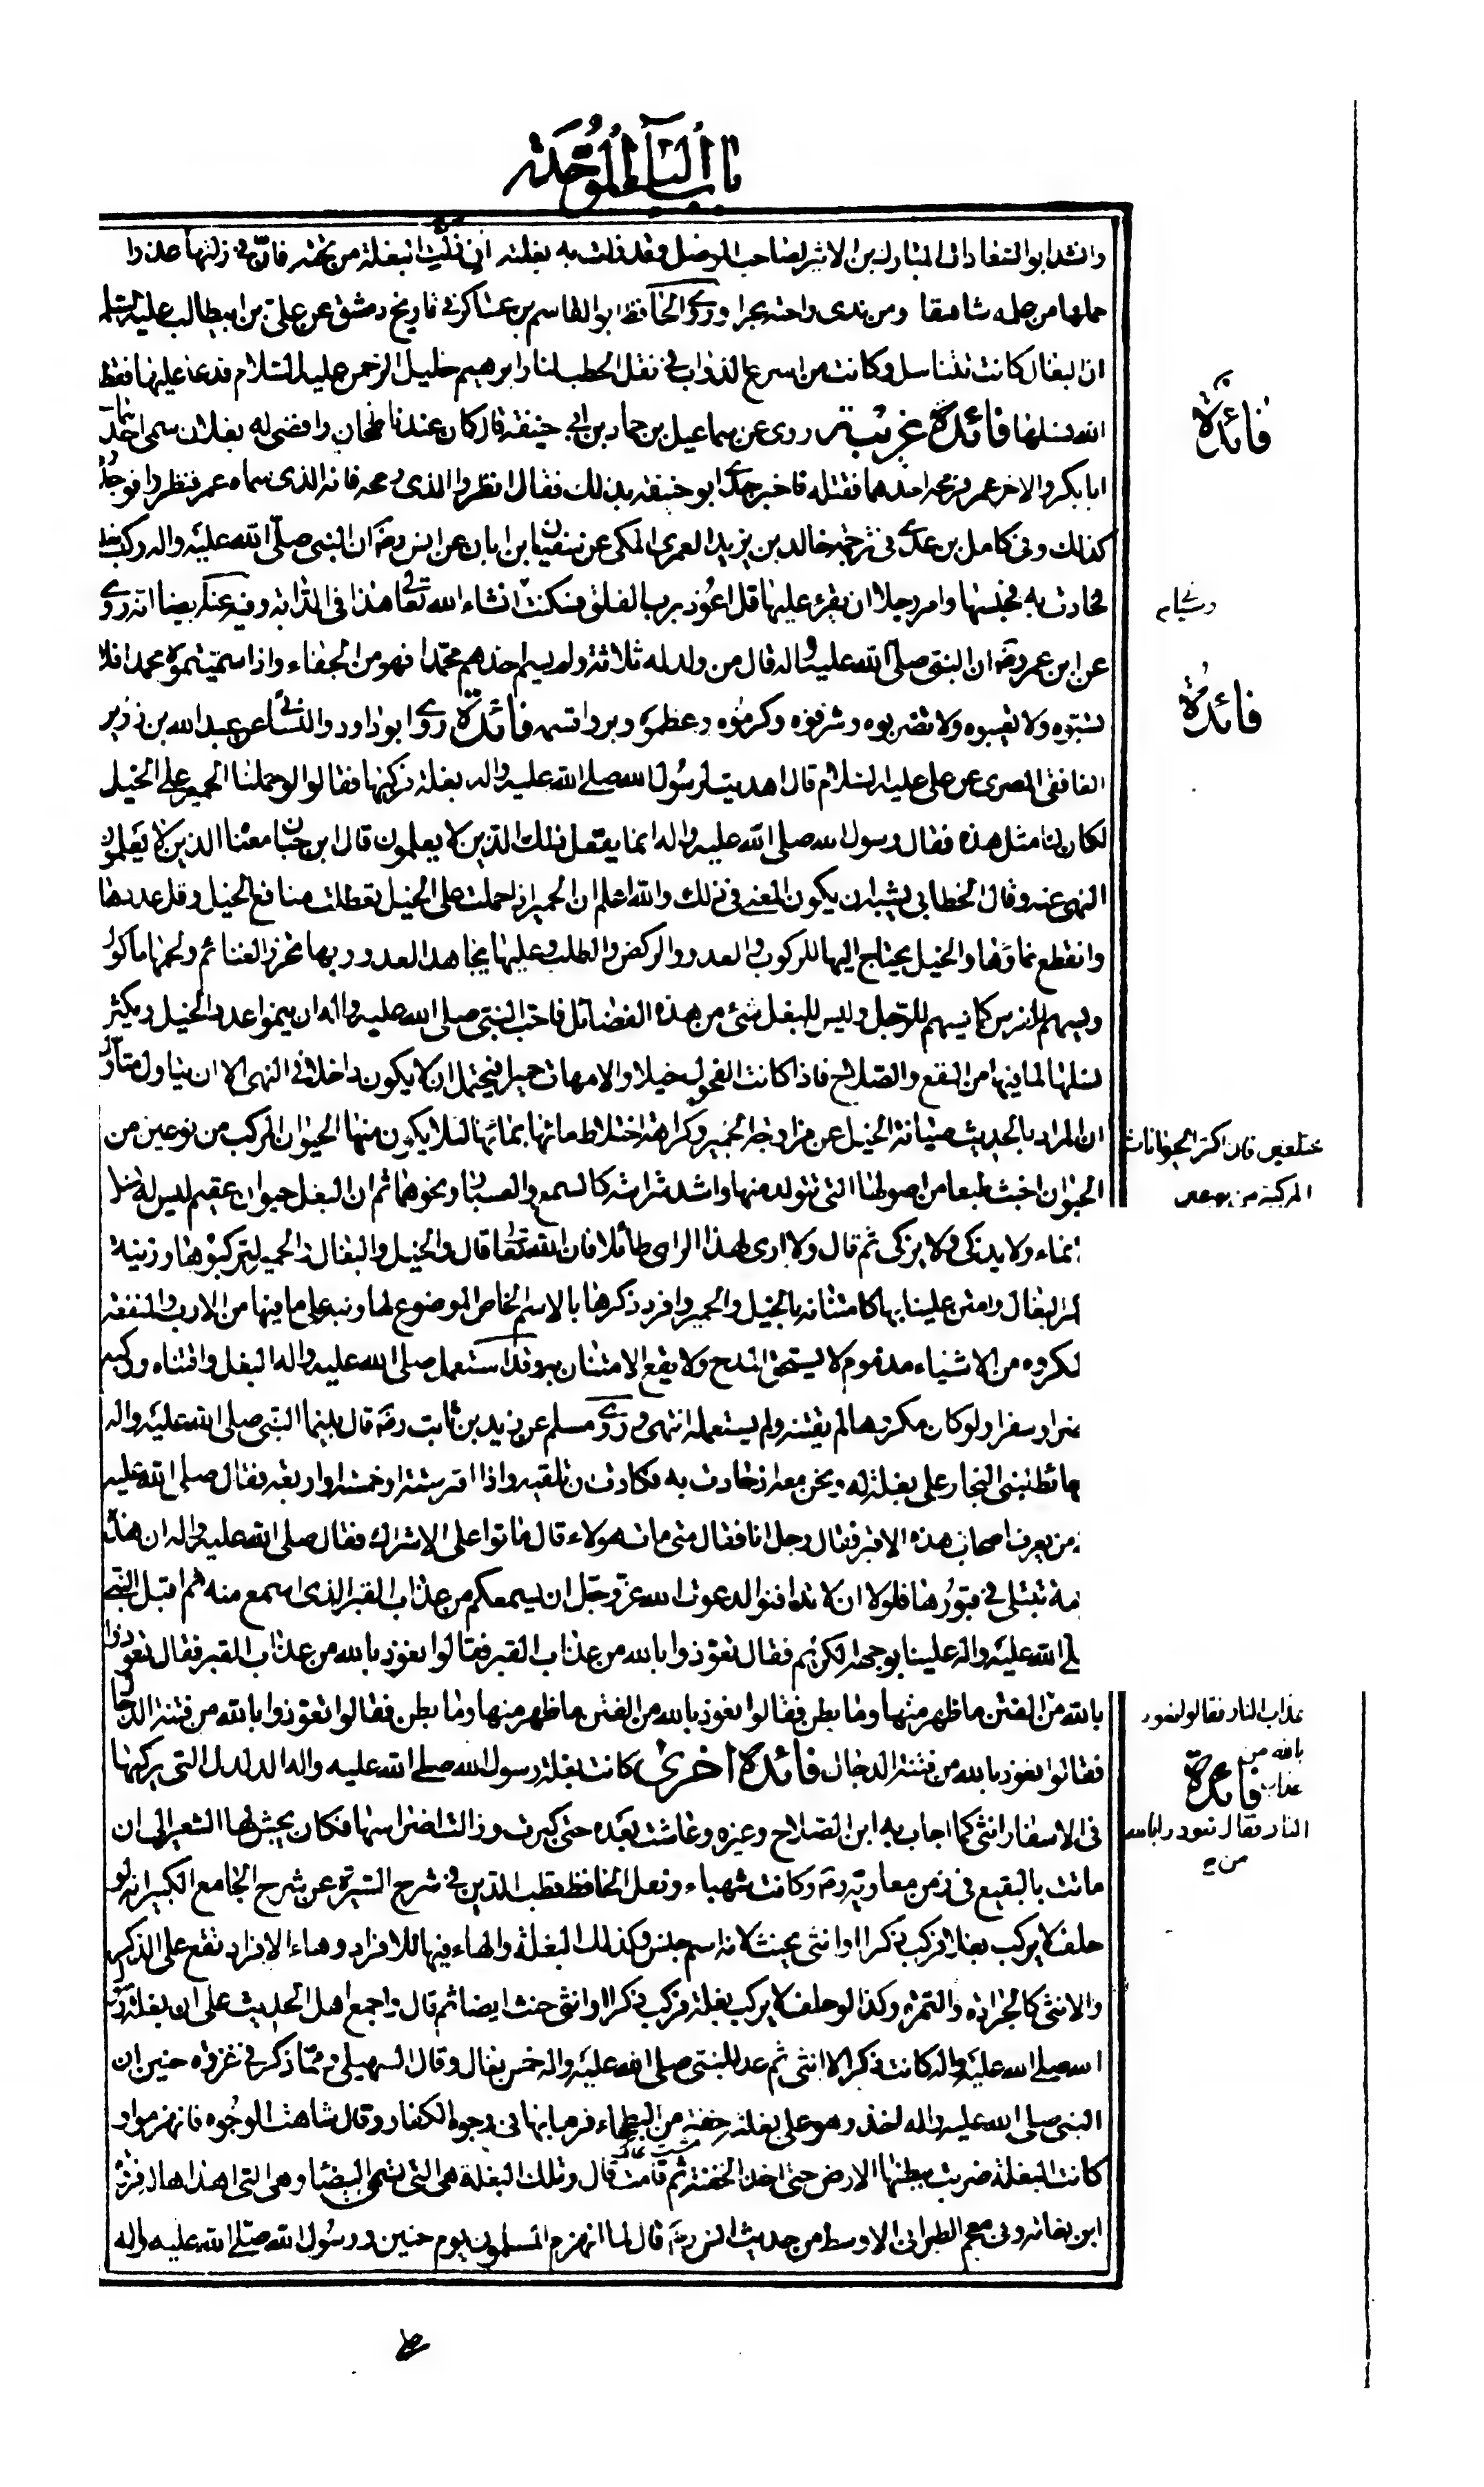 باب الباء الموحدة
وانشد ابو السعادات المبارك بن الاثير لصاحب الموصل وقد زلت به بغلته ان زلت البغلة من تحته فان فى زلتها عذرا
حملها من حلمه شاهقا ومن ندى راحته بحرا وروى الحافظ ابو القاسم بن عساكر فى تاريخ دمشق عن على بن ابيطالب عليه السلم
ان البغال كانت تتناسل وكانت من اسرع الدواب فى نقل الحطب لنار ابرهيم خليل الرحمن عليه السلام فدعا عليها فقطع
الله نسلها فائدة غريبة روى عن اسماعيل بن حماد بن ابى حنيفة قال كان عندنا طحان رافضى له بغلان سمى احدهما
ابا بكر والاخر عمر فرمحه احدهما فقتله فاخبر جدى ابو حنيفة بذلك فقال انظروا الذى رمحه فانه الذى سماه عمر فنظروا فوجدوا
كذلك وفى كامل بن عدى فى ترجمة خالد بن يزيد العمرى المكى عن سفيان بن ابان عن انس رضه ان النبى صلى الله عليه واله ركب بغلة
فحادت به فحبسها وامر رجلا ان يقرء عليها قل اعوذ برب الفلق فسكنت انشاء الله تعالى هذا فى الدابة وفيه عنه ايضا انه روى
عن ابن عمر رضه ان النبى صلى الله عليه واله قال من ولد له ثلاثة ولم يسم احدهم محمدا فهو من الجفاء واذا سميتموه محمدا فلا
تسبوه ولا تعيبوه ولا تضربوه وشرفوه وكرموه وعظموه وبروا قسمه فائدة روى ابو داود والنسائى عن عبد الله بن زرير
الغافقى المصرى عن على عليه السلام قال اهديت لرسول الله صلى الله عليه واله بغلة فركبها فقالوا لو حملنا الحمير على الخيل
لكان لنا مثل هذه فقال رسول الله صلى الله عليه واله انما يفعل ذلك الذين لا يعلمون قال ابن حبان معناه الذين لا يعلمون
النهى عنه وقال الخطابى يشبه ان يكون المعنى فى ذلك والله اعلم ان الحمير اذا حملت على الخيل تعطلت منافع الخيل وقل عددها
وانقطع نماؤها والخيل يحتاج اليها للركوب والعدو والركض والطلب وعليها يجاهد العدو وبها تحرز الغنائم ولحمها ماكول
ويسهم للفرس كما يسهم للرجل وليس للبغل شئ من هذه الفضائل فاحب النبى صلى الله عليه واله ان ينمو عدد الخيل ويكثر
نسلها لما فيها من النفع والصلاح فاذا كانت الفحول خيلا والامهات حميرا فيحتمل ان لا يكون داخلا فى النهى الا ان يتاول متاول
ان المراد بالحديث صيانة الخيل عن مزاوجة الحمير وكراهة اختلاط مائها بمائها لئلا يكون منها الحيوان المركب من نوعين من
الحيوان اخبث طبعا من اصولها التى تتولد منها واشد شراسة كالسمع والعسبار ونحوهما ثم ان البغل حيوان عقيم ليس له نسل
نماء ولا يذكى ولا يزكى ثم قال ولا ارى لهذا الراى طائلا فان الله تعالى قال والخيل والبغال والحمير لتركبوها وزينة
البغال وامتن علينا بها كامتنانه بالخيل والحمير وافرد ذكرها بالاسم الخاص الموضوع لها ونبه على ما فيها من الارب والمنفعة
لمكروه من الاشياء مذموم لا يستحق المدح ولا يقع الامتنان به وقد استعمل صلى الله عليه واله البغل واقتناه وركبه
حضرا وسفرا ولو كان مكروها لم يقتنه ولم يستعمله انتهى وروى مسلم عن زيد بن ثابت رضه قال بينما النبى صلى الله عليه واله
حائط لبنى النجار على بغلة له ونحن معه اذ حادت به فكادت ان تلقيه واذا اقبر ستة او خمسة او اربعة فقال صلى الله عليه
من يعرف اصحاب هذه الاقبر فقال رجل انا فقال متى مات هولاء قال ماتوا على الاشراك فقال صلى الله عليه واله ان هذه
مة تبتلى فى قبورها فلولا ان لا تدافنوا لدعوت الله عز وجل ان يسمعكم من عذاب القبر الذى اسمع منه ثم اقبل النبى
لى الله عليه واله علينا بوجهه الكريم فقال تعوذوا بالله من عذاب القبر فقالوا نعوذ بالله من عذاب القبر فقال تعوذوا
بالله من الفتن ما ظهر منها وما بطن فقالوا نعوذ بالله من الفتن ما ظهر منها وما بطن فقالوا تعوذوا بالله من فتنة الدجال
فقالوا نعوذ بالله من فتنة الدجال فائدة اخرى كانت بغلة رسول الله صلى الله عليه واله الدلدل التى يركبها
فى الاسفار انثى كما اجاب به ابن الصلاح وغيره وعاشت بعده حتى كبرت وزالت اضراسها فكان يجش لها الشعير الى ان
ماتت بالبقيع فى زمن معاوية رضه وكانت شهباء ونقل الحافظ قطب الدين فى شرح السيرة عن شرح الجامع الكبير انه لو
حلف لا يركب بغلا فركب ذكرا او انثى يحنث لانه اسم جنس وكذلك البغلة والهاء فيها للافراد وهاء الافراد تقع على الذكر
والانثى كالجرادة والتمرة وكذا لو حلف لا يركب بغلة فركب ذكرا او انثى حنث ايضا ثم قال واجمع اهل الحديث على ان بغلة رسول
الله صلى الله عليه واله كانت ذكرا لا انثى ثم عد للنبى صلى الله عليه واله خمس بغال وقال السهيلى ومما ذكر فى غزوة حنين ان
النبى صلى الله عليه واله اخذ وهو على بغلته حفنة من البطحاء فرمى بها فى وجوه الكفار وقال شاهت الوجوه فانهزموا و
كانت البغلة ضربت ببطنها الارض حتى اخذ الحفنة ثم قامت قال وتلك البغلة هى التى تسمى البيضاء وهى التى اهداها له فروة
ابن نفاثة وفى معجم الطبرانى الاوسط من حديث انس رضه قال لما انهزم المسلمون يوم حنين ورسول الله صلى الله عليه واله
فائدة
فائدة
مختلفين فان اكثر الحيوانات
المركبة من نوعين
عذاب النار فقالوا نعوذ
بالله من
عذاب
فائدة
النار فقال تعوذوا بالله
من